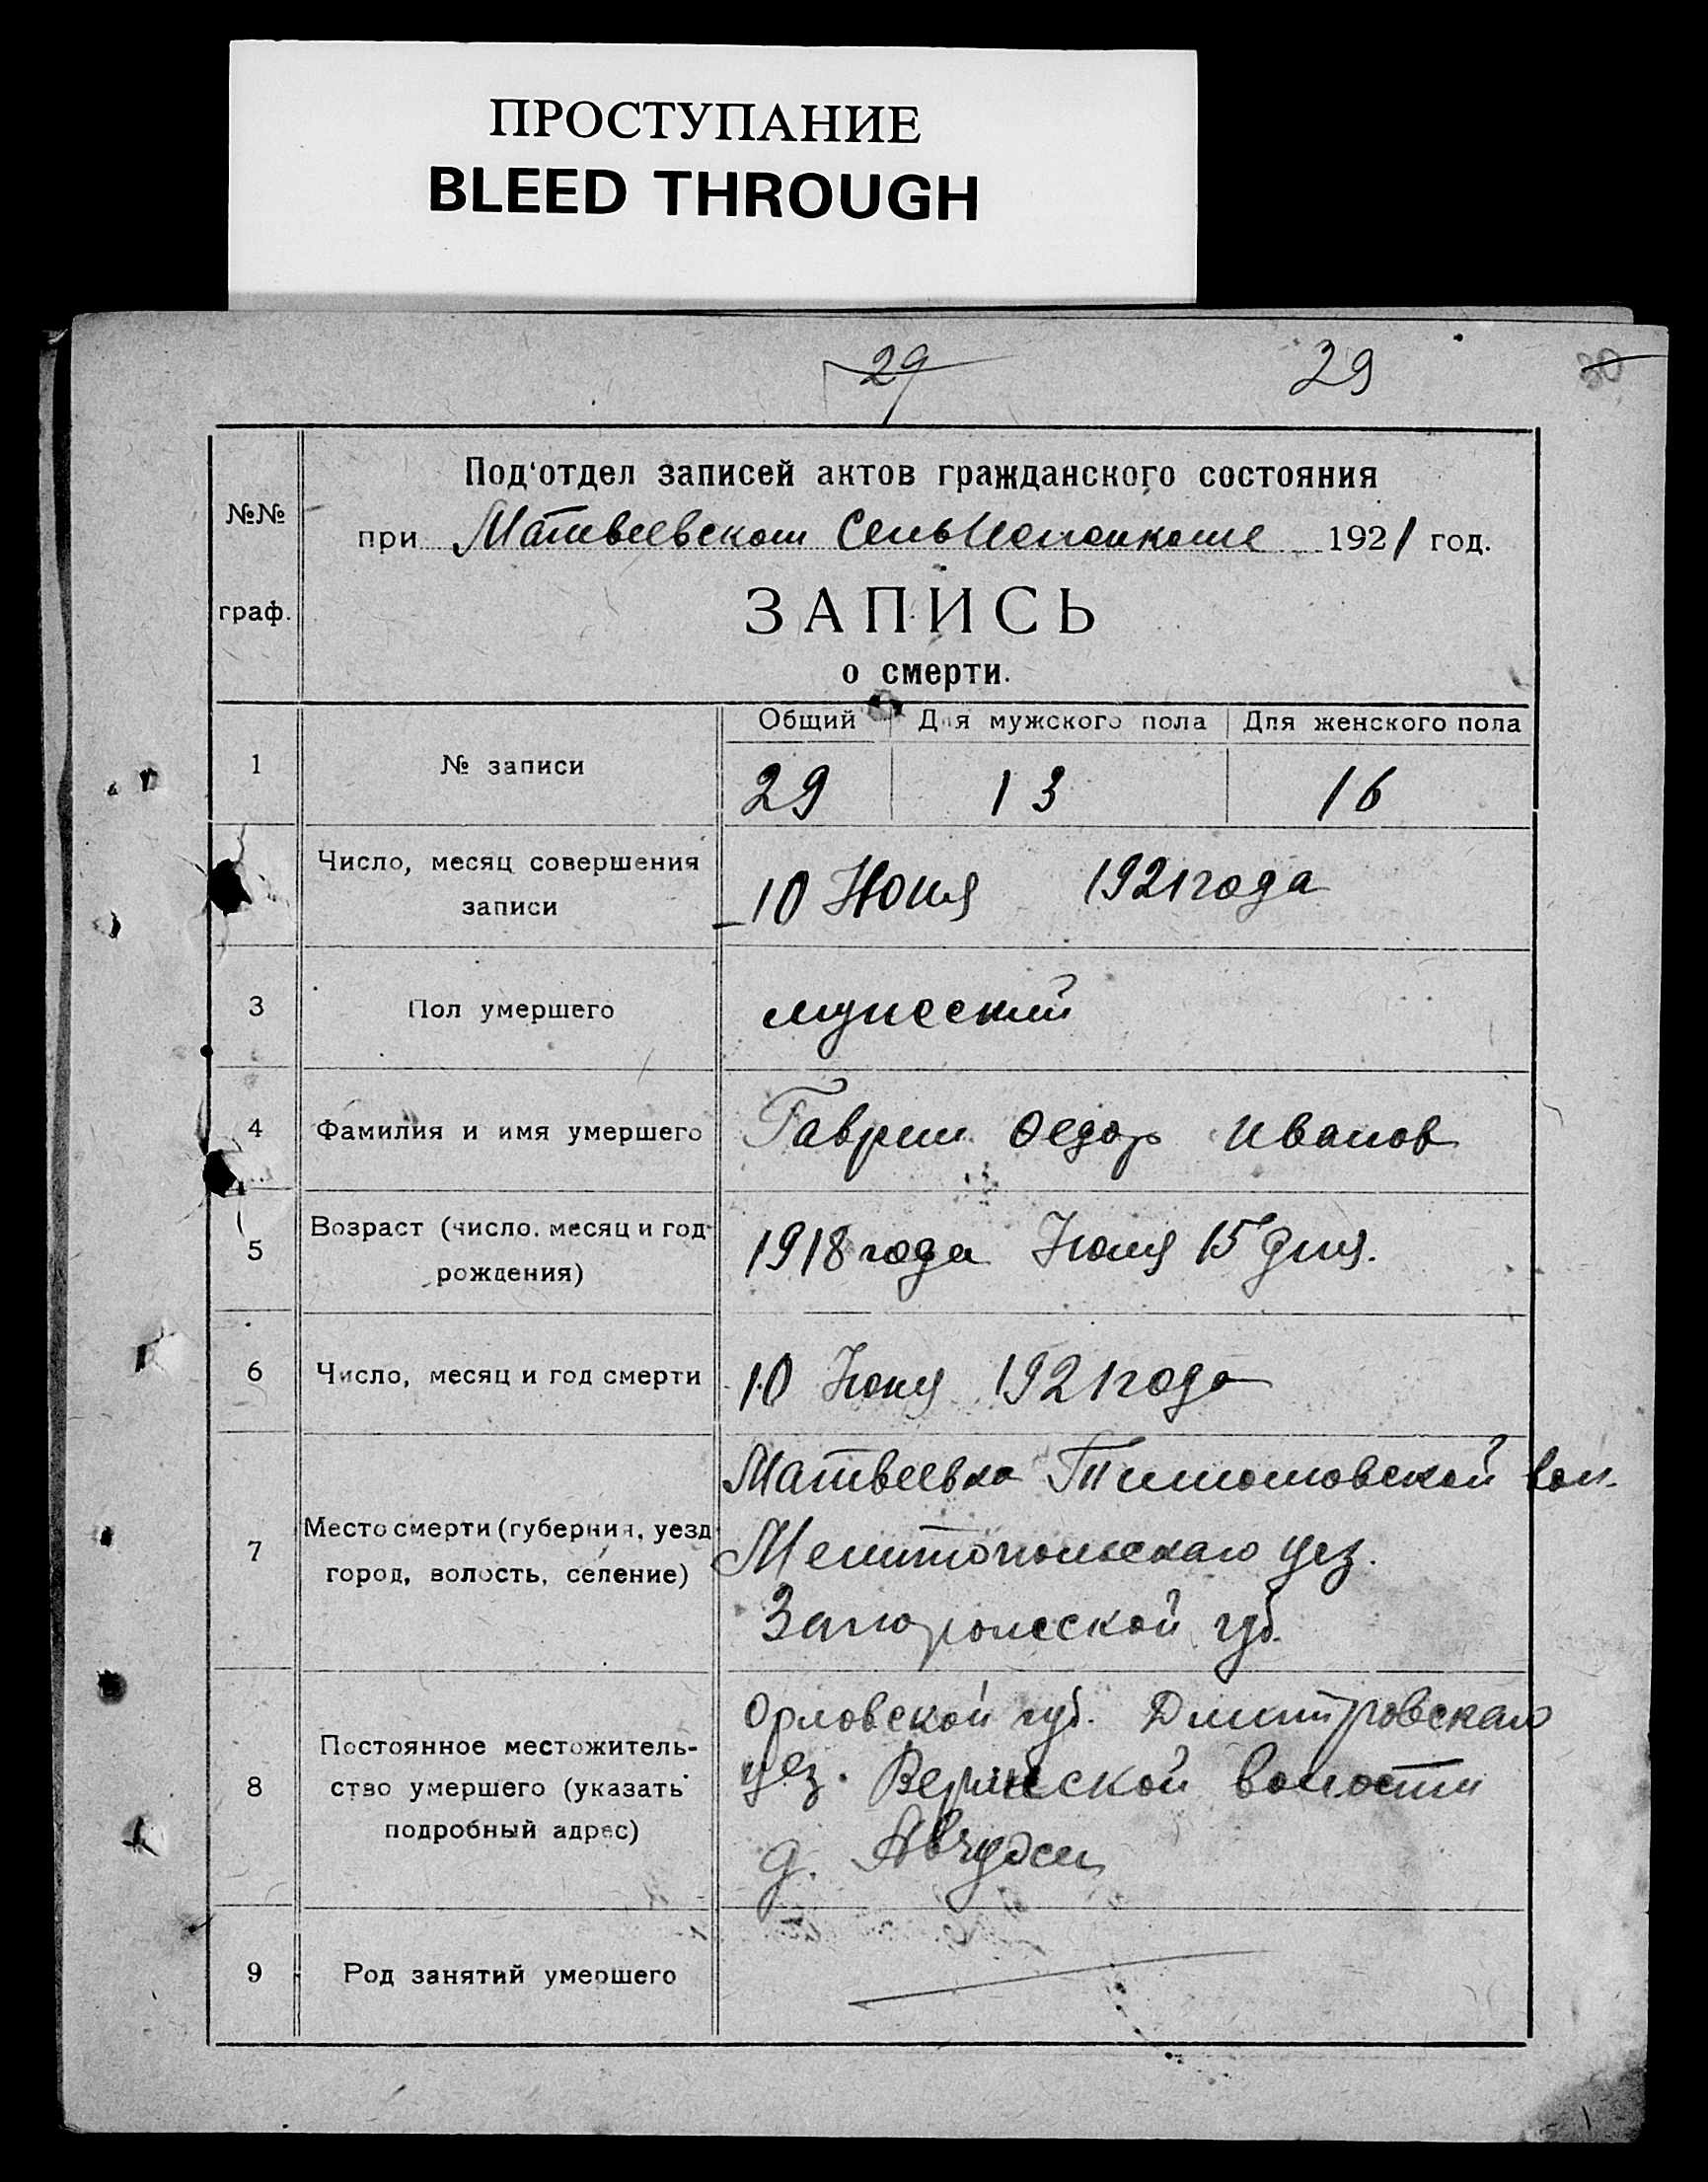 ПРОСТУПАНИЕ
BLEED THROUGH
29 29 30
Под'отдел записей актов гражданского состояния
№№
при Матвеевском 1921 год.
граф.
ЗАПИСЬ
о смерти.
Общий Для мужского пола Для женского пола
1 № записи 29 13 16
Число, месяц совершения
записи
10 Июня 1921 года
3 Пол умершего мужеский
4 Фамилия и имя умершего Гаврин Федор Иванов
Возраст (число, месяц и год
5
рождения)
1918 года Июня 15 дня.
6 Число, месяц и год смерти 10 Июня 1921 года
Матвеевка вол.
Место смерти (губерния, уезд
7
город, волость, селение)
Мелитопольскаго уез.
Запорожской губ.
Орловской губ. Дмитровскаго
Постоянное местожитель-
8 ство умершего (указать
подробный адрес)
уез. волости
д.
9 Род занятий умершего